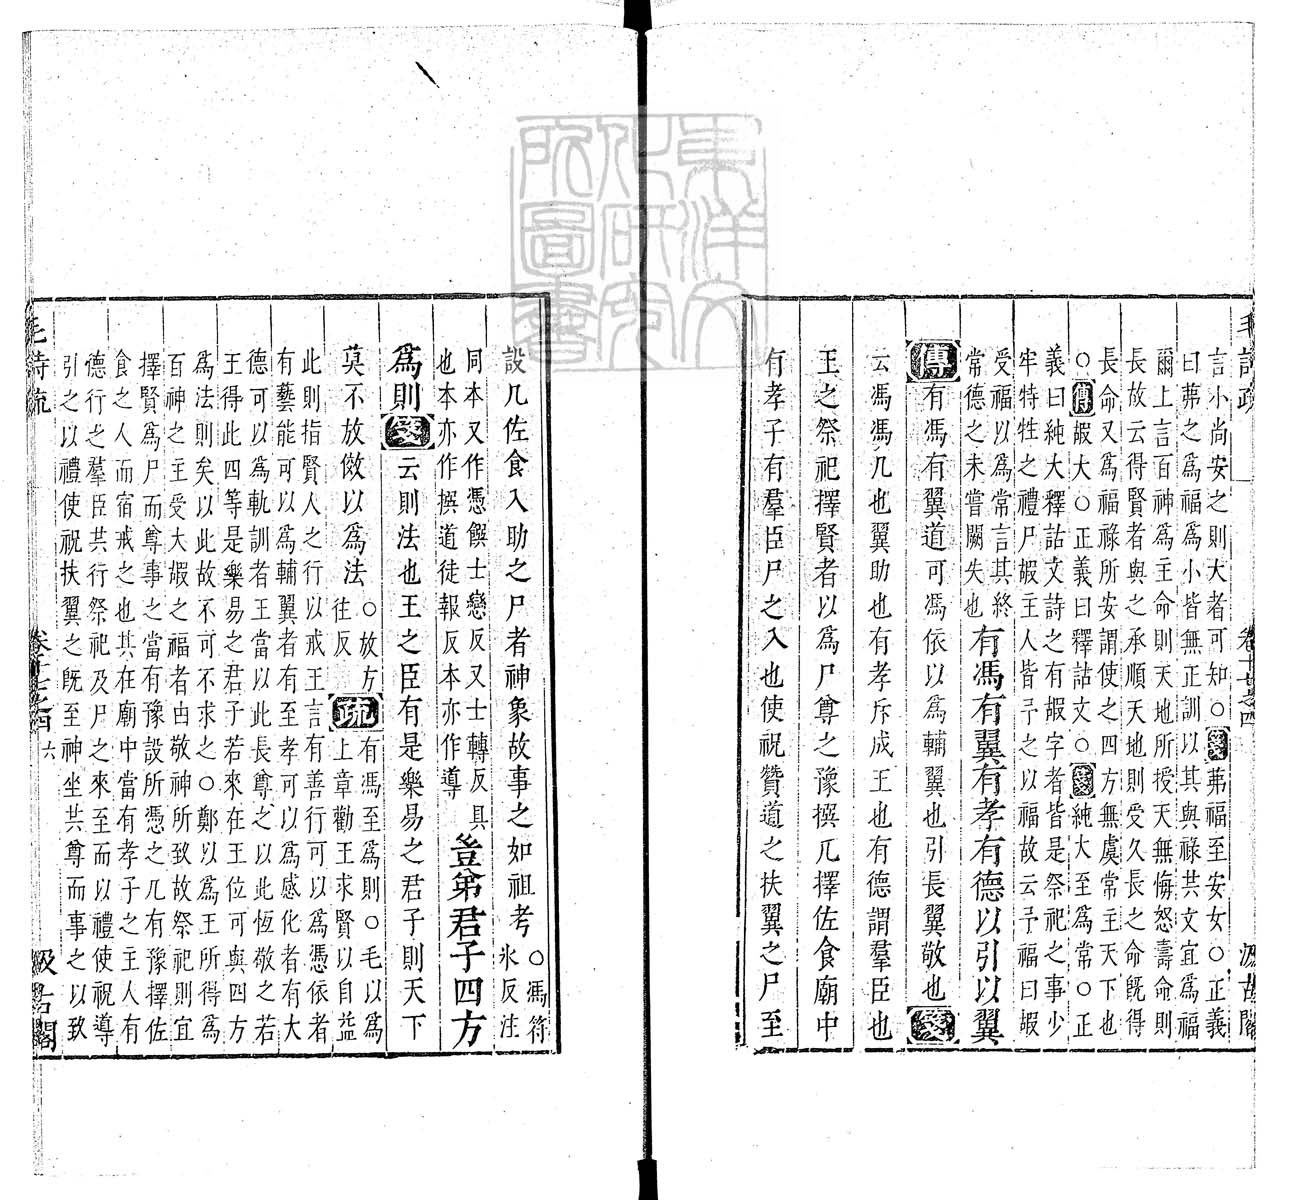 毛詩疏 卷十七之四 汲古閣
言小尚安之則大者可知○箋茀福至安女○正義
曰茀之為福為小皆無正訓以其與祿共文宜為福
爾上言百神為主命則天地所授天無悔怒壽命則
長故云得賢者與之承順天地則受久長之命旣得
長命又為福祿所安謂使之四方無虞常主天下也
○傳嘏大○正義曰釋詁文○箋純大至為常○正
義曰純大釋詁文詩之有嘏字者皆是祭祀之事少
牢特牲之禮尸嘏主人皆予之以福故云予福曰嘏
受福以為常言其終
常德之未嘗闕失也
有馮有翼有孝有德以引以翼
傳有馮有翼道可馮依以為輔翼也引長翼敬也箋
云馮馮几也翼助也有孝斥成王也有德謂羣臣也
王之祭祀擇賢者以為尸尊之豫撰几擇佐食廟中
有孝子有羣臣尸之入也使祝贊道之扶翼之尸至
設几佐食入助之尸者神象故事之如祖考
○馮符
氷反注
同本又作憑饌士戀反又士轉反具
也本亦作撰道徒報反本亦作導
豈弟君子四方
為則箋云則法也王之臣有是樂易之君子則天下
莫不放傚以為法
○放方
往反
疏
有馮至為則○毛以為
上章勸王求賢以自益
此則指賢人之行以戒王言有善行可以為憑依者
有藝能可以為輔翼者有至孝可以為感化者有大
德可以為軌訓者王當以此長尊之以此恆敬之若
王得此四等是樂易之君子若來在王位可與四方
為法則矣以此故不可不求之○鄭以為王所得為
百神之主受大嘏之福者由敬神所致故祭祀則宜
擇賢為尸而尊事之當有豫設所憑之几有豫擇佐
食之人而宿戒之也其在廟中當有孝子之主人有
德行之羣臣共行祭祀及尸之來至而以禮使祝導
引之以禮使祝扶翼之旣至神坐共尊而事之以致
毛詩疏 卷十七之四 六 汲古閣
東洋文化研究所圖書